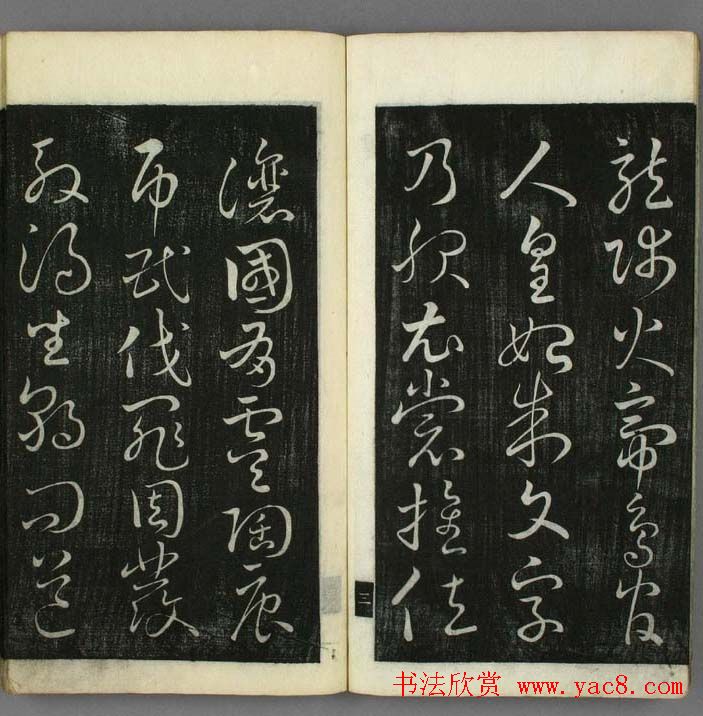 龍師火帝鳥官
人皇始制文字
乃服衣裳推位
三
讓國有虞陶唐
弔民伐罪周發
殷湯坐朝問道
书法欣赏 www.yac8.com